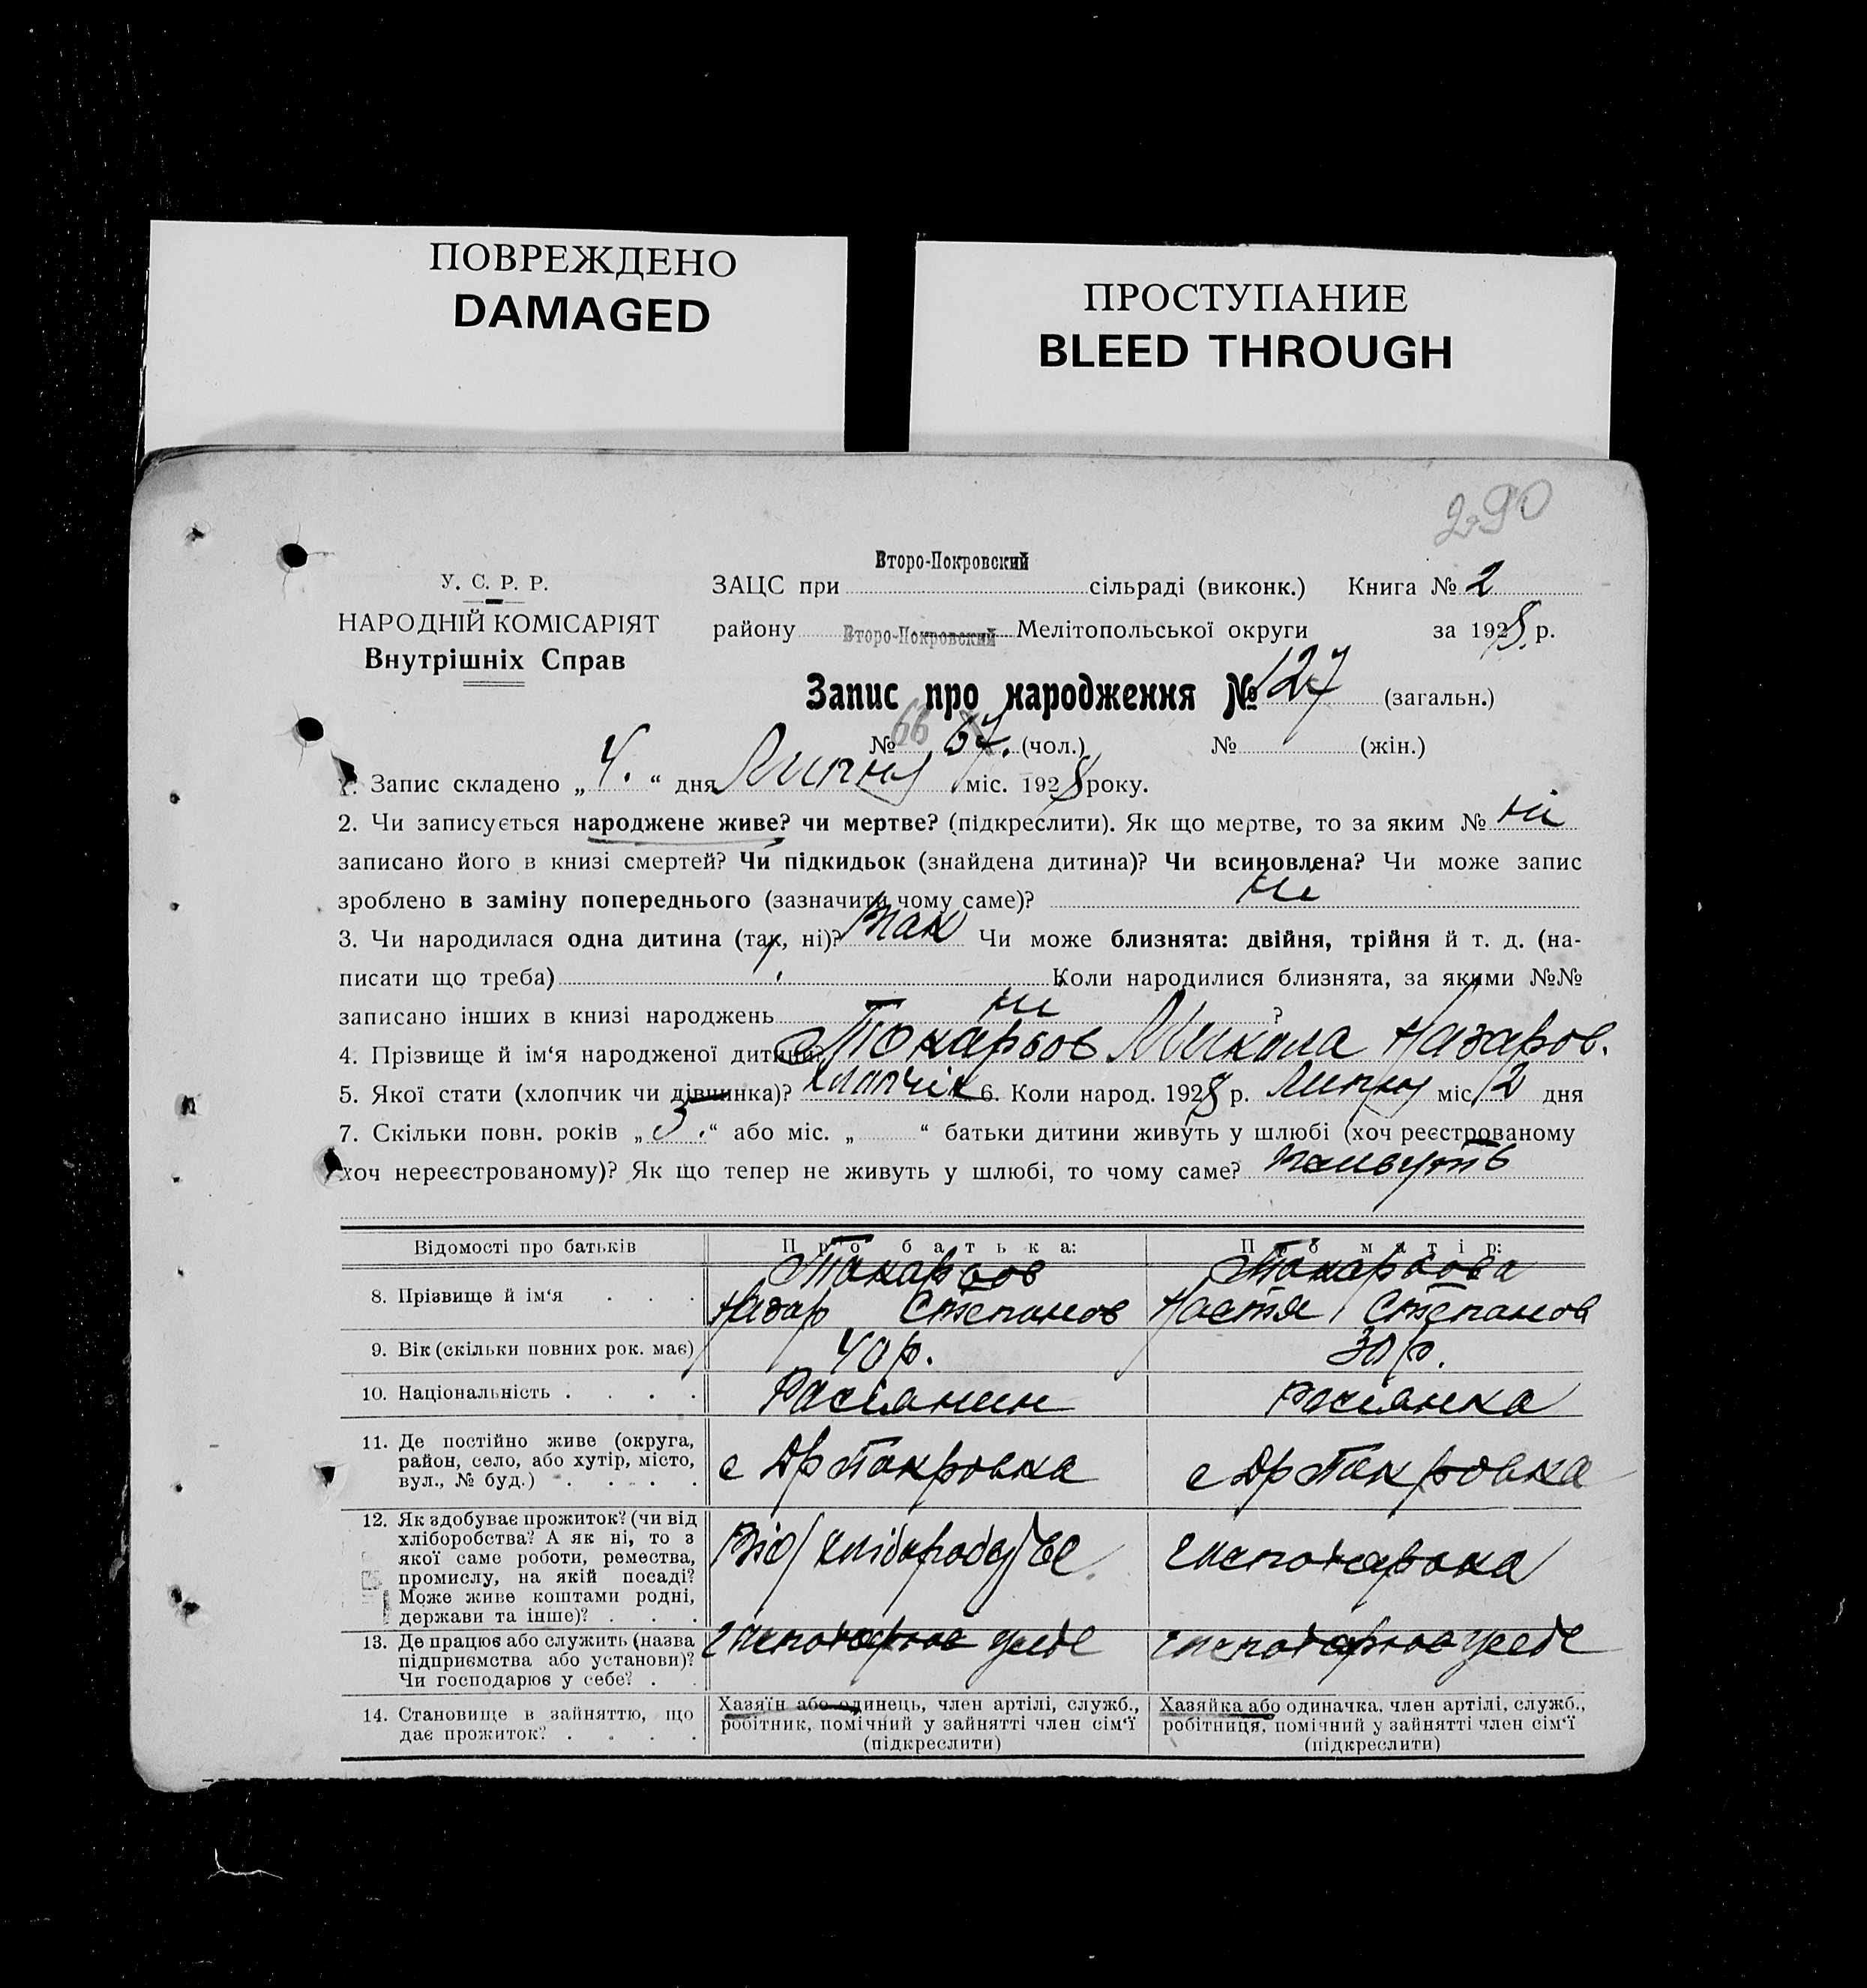 ПОВРЕЖДЕНО
DAMAGED
ПРОСТУПАНИЕ
BLEED THROUGH
290
У. С. Р. Р.
НАРОДНІЙ КОМІСАРІЯТ
Внутрішніх Справ
Второ-Покровский
ЗАЦС при сільраді (виконк.) Книга № 2
району Второ-Покровский Мелітопольської округи за 1928 р.
Запис про народження № 127 (загальн.)
№ 66 67. (чол.) № (жін.)
1. Запис складено „ 4. “ дня Липня міс. 1928 року.
2. Чи записується народжене живе? чи мертве? (підкреслити). Як що мертве, то за яким № ні
записано його в книзі смертей? Чи підкидьок (знайдена дитина)? Чи всиновлена? Чи може запис
зроблено в заміну попереднього (зазначити чому саме)? ні
3. Чи народилася одна дитина (так, ні)? так Чи може близнята: двійня, трійня й т. д. (на-
писати що треба) Коли народилися близнята, за якими №№
записано інших в книзі народжень ні ?
4. Прізвище й ім‘я народженої дитини? Токарьов Микола Назаров.
5. Якої стати (хлопчик чи дівчинка)? хлопчік 6. Коли народ. 1928 р. Липня міс. 2 дня
7. Скільки повн. років „ 5. “ або міс. „ “ батьки дитини живуть у шлюбі (хоч реєстрованому
хоч нереєстрованому)? Як що тепер не живуть у шлюбі, то чому саме?
Відомості про батьків Про батька: Про матір:
8. Прізвище й ім‘я . . . Токарьов Назар Степанов Токарьова Настя Степанов
9. Вік (скільки повних рок. має) 40 р. 30 р.
10. Національність . . . . Расіянин расіянка
11. Де постійно живе (округа,
район, село, або хутір, місто,
вул., № буд.) . . . . . с Др Покровка с Др Покровка
12. Як здобуває прожиток? (чи від
хліборобства? А як ні, то з
якої саме роботи, ремества,
промислу, на якій посаді?
Може живе коштами родні,
держави та інше)? . . .
13. Де працює або служить (назва
підприємства або установи)?
Чи господарює у себе? . .
14. Становище в зайняттю, що
дає прожиток? . . . .
Хазяїн або одинець, член артілі, служб.,
робітник, помічний у зайнятті член сім‘ї
(підкреслити)
Хазяйка або одиначка, член артілі, служб.,
робітниця, помічний у зайнятті член сім‘ї
(підкреслити)